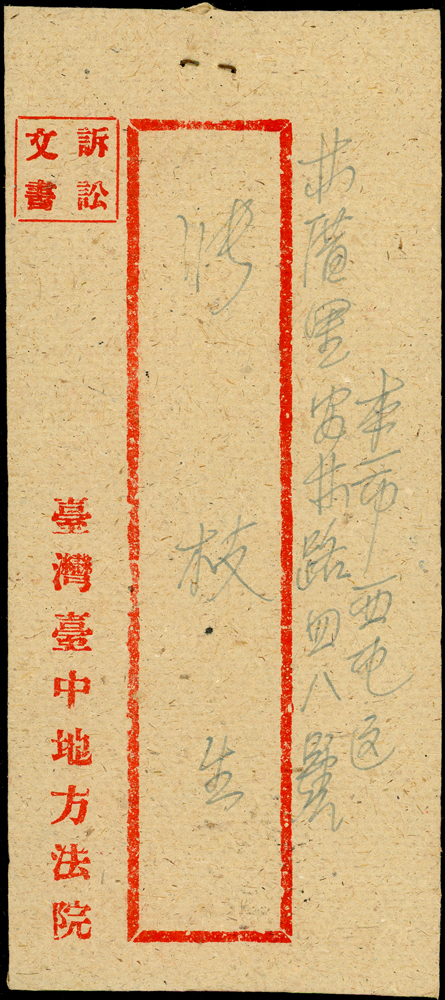 本市西屯区
林厝里安林路四八號
張枝生
訴訟
文書
臺灣臺中地方法院